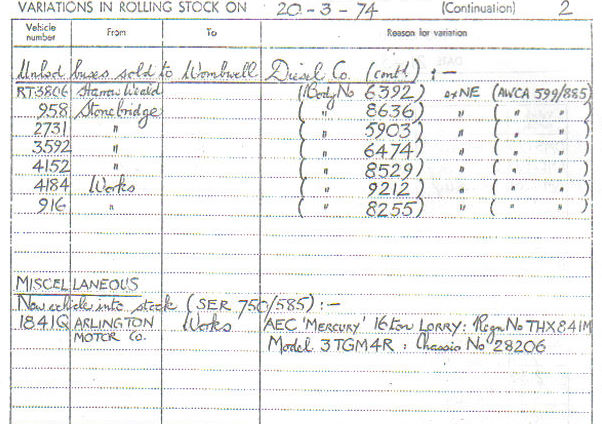 VARIATIONS IN ROLLING STOCK ON 20-3-74 (Continuation) 2
Vehicle number From To Reason for variation
buses sold to Wombwell Diesel Co. (contd) :-
RT3806 Harrow Weald (Body No 6392) exNE (AWCA 599/885)
958 Stonebridge ( " 8636) " ( " " )
2731 " ( " 5903) " ( " " )
3592 " ( " 6474) " ( " " )
4152 " ( " 8529) " ( " " )
4184 Works ( " 9212) " ( " " )
916 " ( " 8255) " ( " " )
MISCELLANEOUS
New vehicle into stock (SER 750/585) :-
1841Q ARLINGTON MOTOR CO. Works AEC 'MERCURY' 16 ton LORRY: Regn No THX841M
Model 3TGM4R : Chassis No 28206